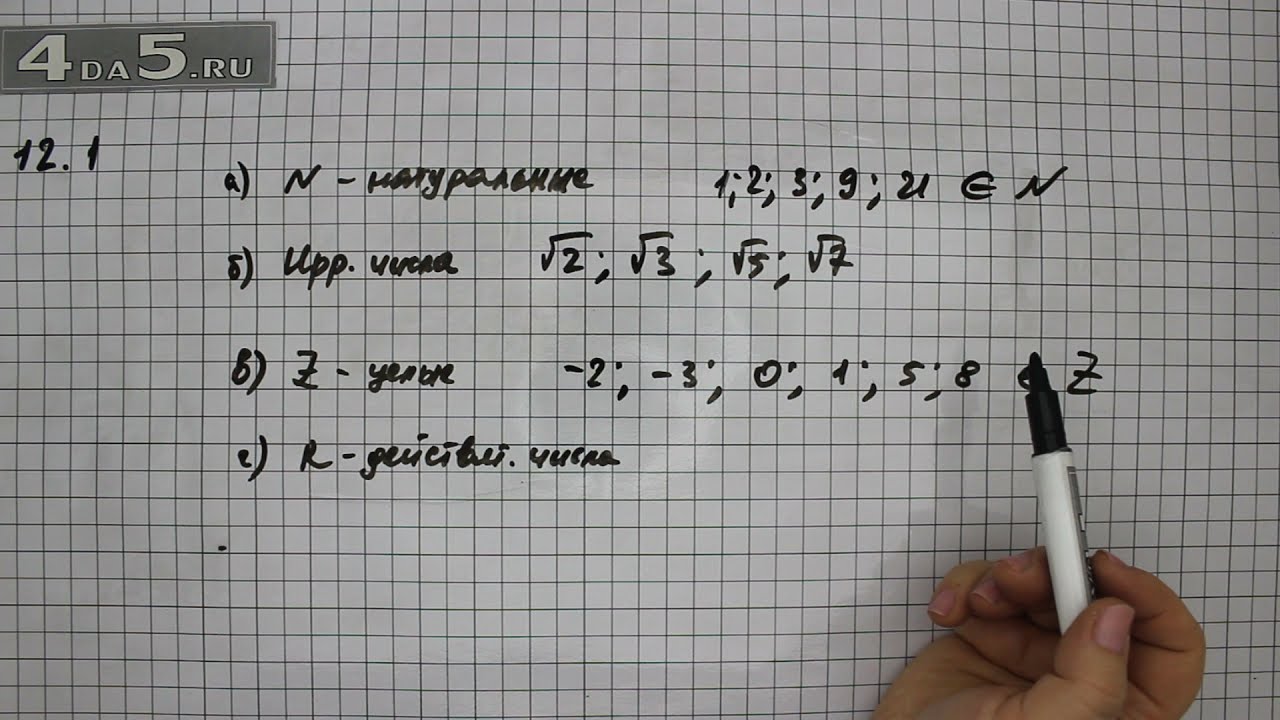 4DA5.RU
12.1
а) N - натуральные 1; 2; 3; 9; 21 ∈ N
б) Ирр. числа √2; √3; √5; √7
в) Z - целые -2; -3; 0; 1; 5; 8 ∈ Z
г) R - действит. числа